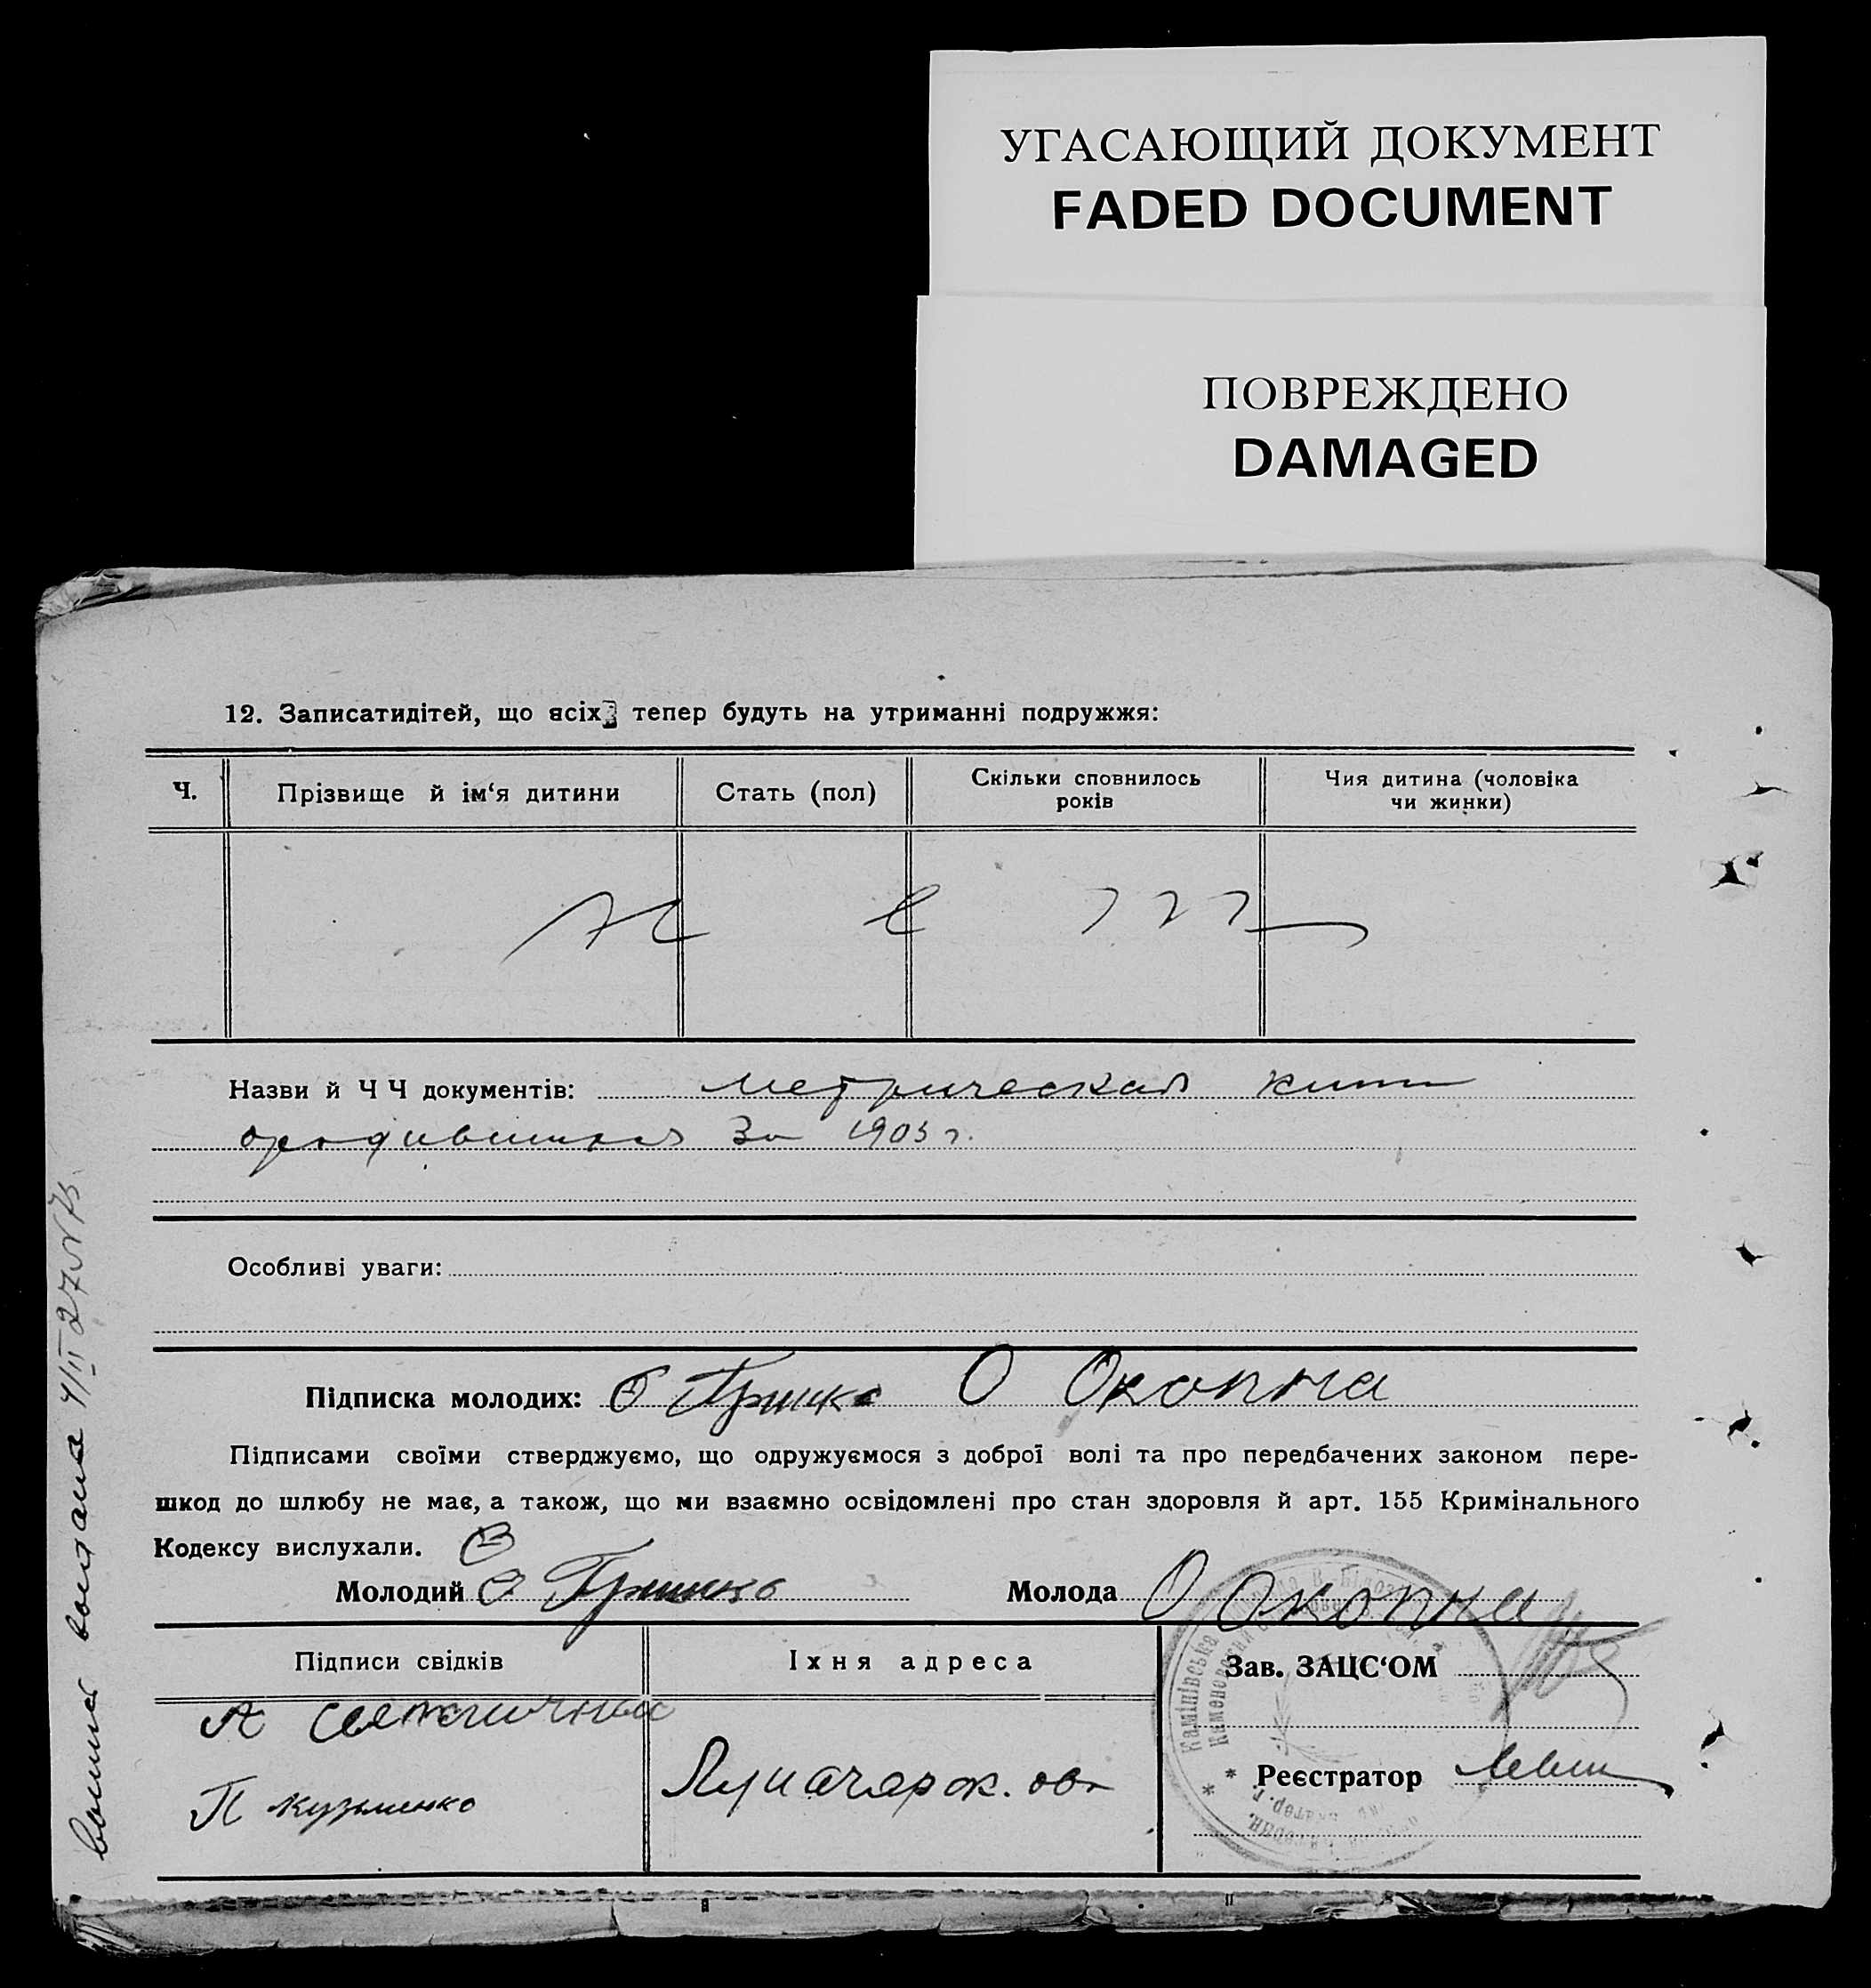 УГАСАЮЩИЙ ДОКУМЕНТ
FADED DOCUMENT
ПОВРЕЖДЕНО
DAMAGED
12. Записатидітей, що всіх тепер будуть на утриманні подружжя:
Ч.
Прізвище й ім‘я дитини
Стать (пол)
Скільки сповнилось
років
Чия дитина (чоловіка
чи жинки)
Назви й Ч Ч документів: метрическая
за 1905 г.
Особливі уваги:
Підписка молодих: Гришко О Окопна
Підписами своїми стверджуємо, що одружуємося з доброї волі та про передбачених законом пере-
шкод до шлюбу не має, а також, що ми взаємно освідомлені про стан здоровля й арт. 155 Кримінального
Кодексу вислухали.
Молодий Гришко Молода О Окопна
Підписи свідків
Їхня адреса
Зав. ЗАЦС‘ОМ
П Кузьменко
Реєстратор
выпись выдана 4/II 27